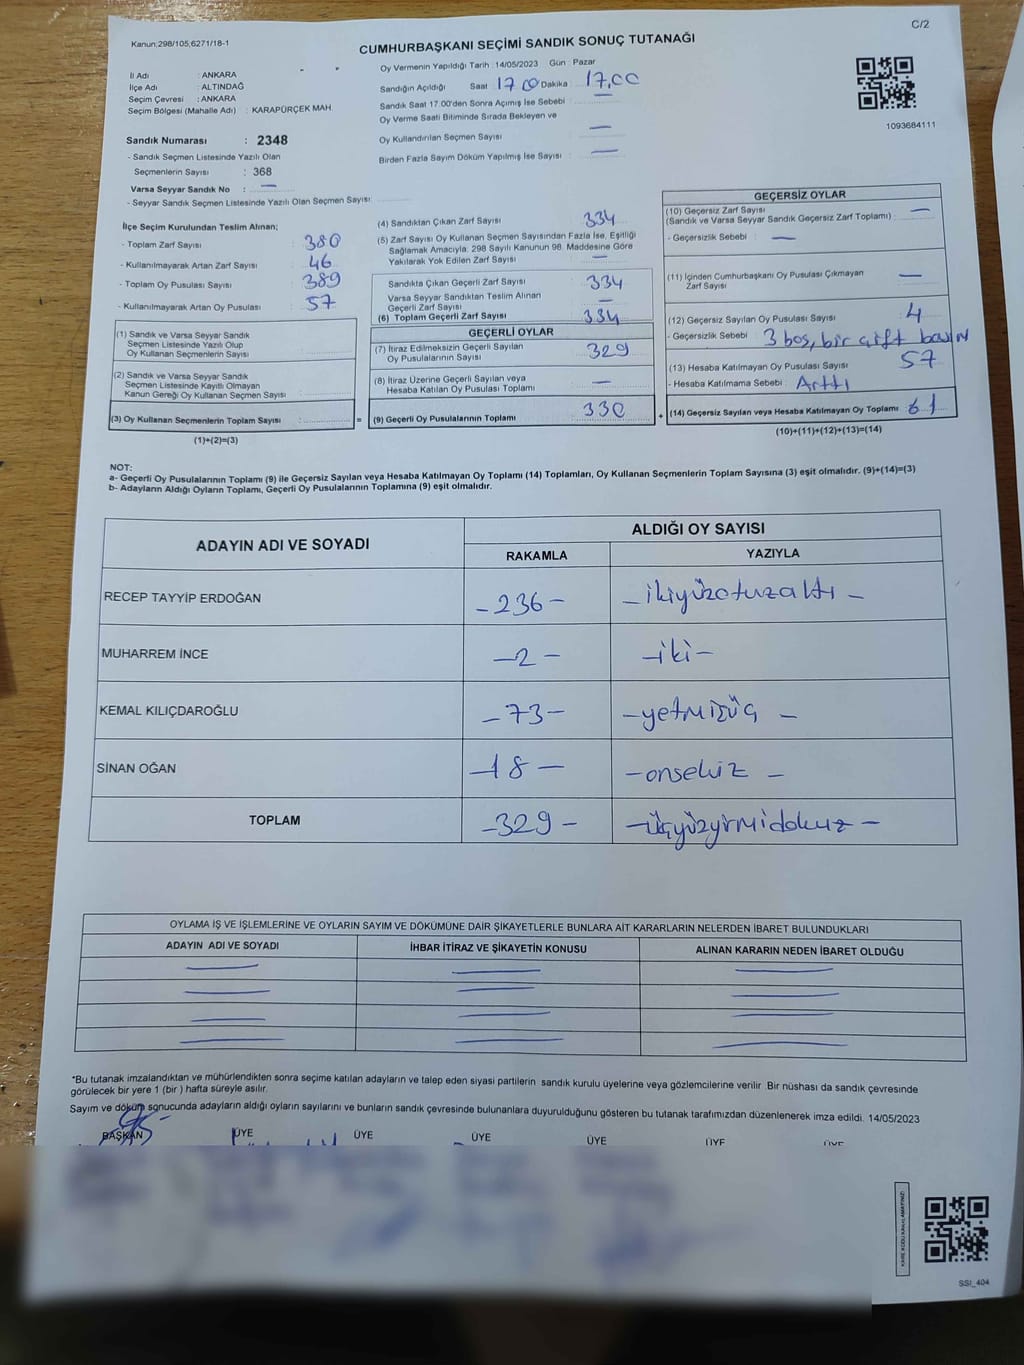 C/2
Kanun:298/105,6271/18-1
CUMHURBAŞKANI SEÇİMİ SANDIK SONUÇ TUTANAĞI
İl Adı : ANKARA
İlçe Adı : ALTINDAĞ
Seçim Çevresi : ANKARA
Seçim Bölgesi (Mahalle Adı) : KARAPÜRÇEK MAH.
Oy Vermenin Yapıldığı Tarih :14/05/2023 Gün : Pazar
Sandığın Açıldığı Saat 17 00 Dakika : 17,00
Sandık Saat 17.00'den Sonra Açımış İse Sebebi : —
Oy Verme Saati Bitiminde Sırada Bekleyen ve
Oy Kullandırılan Seçmen Sayısı : —
Birden Fazla Sayım Döküm Yapılmış İse Sayısı : —
1093684111
Sandık Numarası : 2348
- Sandık Seçmen Listesinde Yazılı Olan
Seçmenlerin Sayısı : 368
Varsa Seyyar Sandık No : —
- Seyyar Sandık Seçmen Listesinde Yazılı Olan Seçmen Sayısı:
İlçe Seçim Kurulundan Teslim Alınan;
- Toplam Zarf Sayısı : 380
- Kullanılmayarak Artan Zarf Sayısı : 46
- Toplam Oy Pusulası Sayısı : 389
- Kullanılmayarak Artan Oy Pusulası : 57
(1) Sandık ve Varsa Seyyar Sandık
Seçmen Listesinde Yazılı Olup
Oy Kullanan Seçmenlerin Sayısı :
(2) Sandık ve Varsa Seyyar Sandık
Seçmen Listesinde Kayıtlı Olmayan
Kanun Gereği Oy Kullanan Seçmen Sayısı :
(3) Oy Kullanan Seçmenlerin Toplam Sayısı : =
(1)+(2)=(3)
(4) Sandıktan Çıkan Zarf Sayısı : 334
(5) Zarf Sayısı Oy Kullanan Seçmen Sayısından Fazla İse, Eşitliği
Sağlamak Amacıyla, 298 Sayılı Kanunun 98. Maddesine Göre
Yakılarak Yok Edilen Zarf Sayısı : —
Sandıkta Çıkan Geçerli Zarf Sayısı : 334
Varsa Seyyar Sandıktan Teslim Alınan
Geçerli Zarf Sayısı : —
(6) Toplam Geçerli Zarf Sayısı : 334
GEÇERLİ OYLAR
(7) İtiraz Edilmeksizin Geçerli Sayılan
Oy Pusulalarının Sayısı : 329
(8) İtiraz Üzerine Geçerli Sayılan veya
Hesaba Katılan Oy Pusulası Toplamı : —
(9) Geçerli Oy Pusulalarının Toplamı : 330 +
GEÇERSİZ OYLAR
(10) Geçersiz Zarf Sayısı : —
(Sandık ve Varsa Seyyar Sandık Geçersiz Zarf Toplamı)
- Geçersizlik Sebebi : —
(11) İçinden Cumhurbaşkanı Oy Pusulası Çıkmayan
Zarf Sayısı : —
(12) Geçersiz Sayılan Oy Pusulası Sayısı : 4
- Geçersizlik Sebebi : 3 boş, bir çift basım
(13) Hesaba Katılmayan Oy Pusulası Sayısı : 57
- Hesaba Katılmama Sebebi : Arttı
(14) Geçersiz Sayılan veya Hesaba Katılmayan Oy Toplamı : 61
(10)+(11)+(12)+(13)=(14)
NOT:
a- Geçerli Oy Pusulalarının Toplamı (9) ile Geçersiz Sayılan veya Hesaba Katılmayan Oy Toplamı (14) Toplamları, Oy Kullanan Seçmenlerin Toplam Sayısına (3) eşit olmalıdır. (9)+(14)=(3)
b- Adayların Aldığı Oyların Toplamı, Geçerli Oy Pusulalarının Toplamına (9) eşit olmalıdır.
ADAYIN ADI VE SOYADI ALDIĞI OY SAYISI
RAKAMLA YAZIYLA
RECEP TAYYİP ERDOĞAN -236- -ikiyüzotuzaltı-
MUHARREM İNCE -2- -iki-
KEMAL KILIÇDAROĞLU -73- -yetmişüç-
SİNAN OĞAN -18- -onsekiz-
TOPLAM -329- -üçyüzyirmidokuz-
OYLAMA İŞ VE İŞLEMLERİNE VE OYLARIN SAYIM VE DÖKÜMÜNE DAİR ŞİKAYETLERLE BUNLARA AİT KARARLARIN NELERDEN İBARET BULUNDUKLARI
ADAYIN ADI VE SOYADI İHBAR İTİRAZ VE ŞİKAYETİN KONUSU ALINAN KARARIN NEDEN İBARET OLDUĞU
*Bu tutanak imzalandıktan ve mühürlendikten sonra seçime katılan adayların ve talep eden siyasi partilerin sandık kurulu üyelerine veya gözlemcilerine verilir. Bir nüshası da sandık çevresinde
görülecek bir yere 1 (bir ) hafta süreyle asılır.
Sayım ve döküm sonucunda adayların aldığı oyların sayılarını ve bunların sandık çevresinde bulunanlara duyurulduğunu gösteren bu tutanak tarafımızdan düzenlenerek imza edildi. 14/05/2023
BAŞKAN ÜYE ÜYE ÜYE ÜYE ÜYE ÜYE
SSI_404